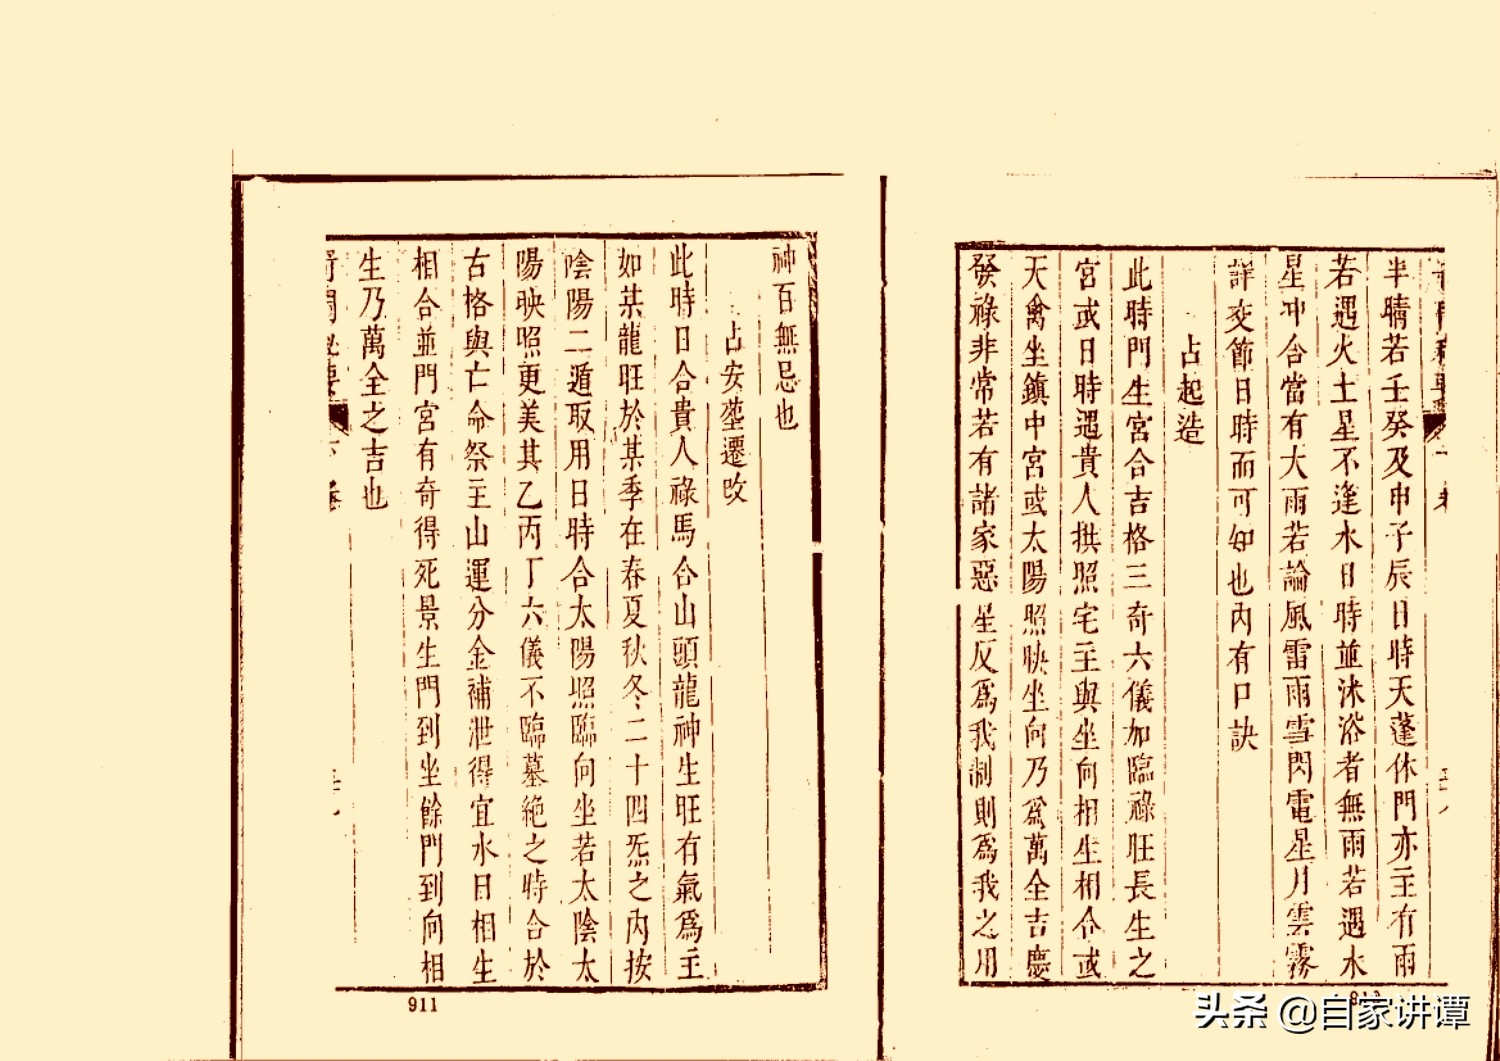 半晴若壬癸及申子辰日時天蓬休門亦主有雨
若遇火土星不逢水日時並沐浴者無雨若遇水
星冲合當有大雨若論風雷雨雪閃電星月雲霧
詳交節日時而可知也內有口訣
占起造
此時門生宮合吉格三奇六儀加臨祿旺長生之
宮或日時遇貴人拱照宅主與坐向相生相合或
天禽坐鎮中宮或太陽照映坐向乃爲萬全吉慶
發祿非常若有諸家惡星反爲我制則爲我之用
神百無忌也
占安塟遷改
此時日合貴人祿馬合山頭龍神生旺有氣爲主
如某龍旺於某季在春夏秋冬二十四炁之內按
陰陽二遁取用日時合太陽照臨向坐若太陰太
陽映照更美其乙丙丁六儀不臨墓絶之時合於
古格與亡命祭主山運分金補泄得宜水日相生
相合並門宮有奇得死景生門到坐餘門到向相
生乃萬全之吉也
911
头条 @自家讲谭